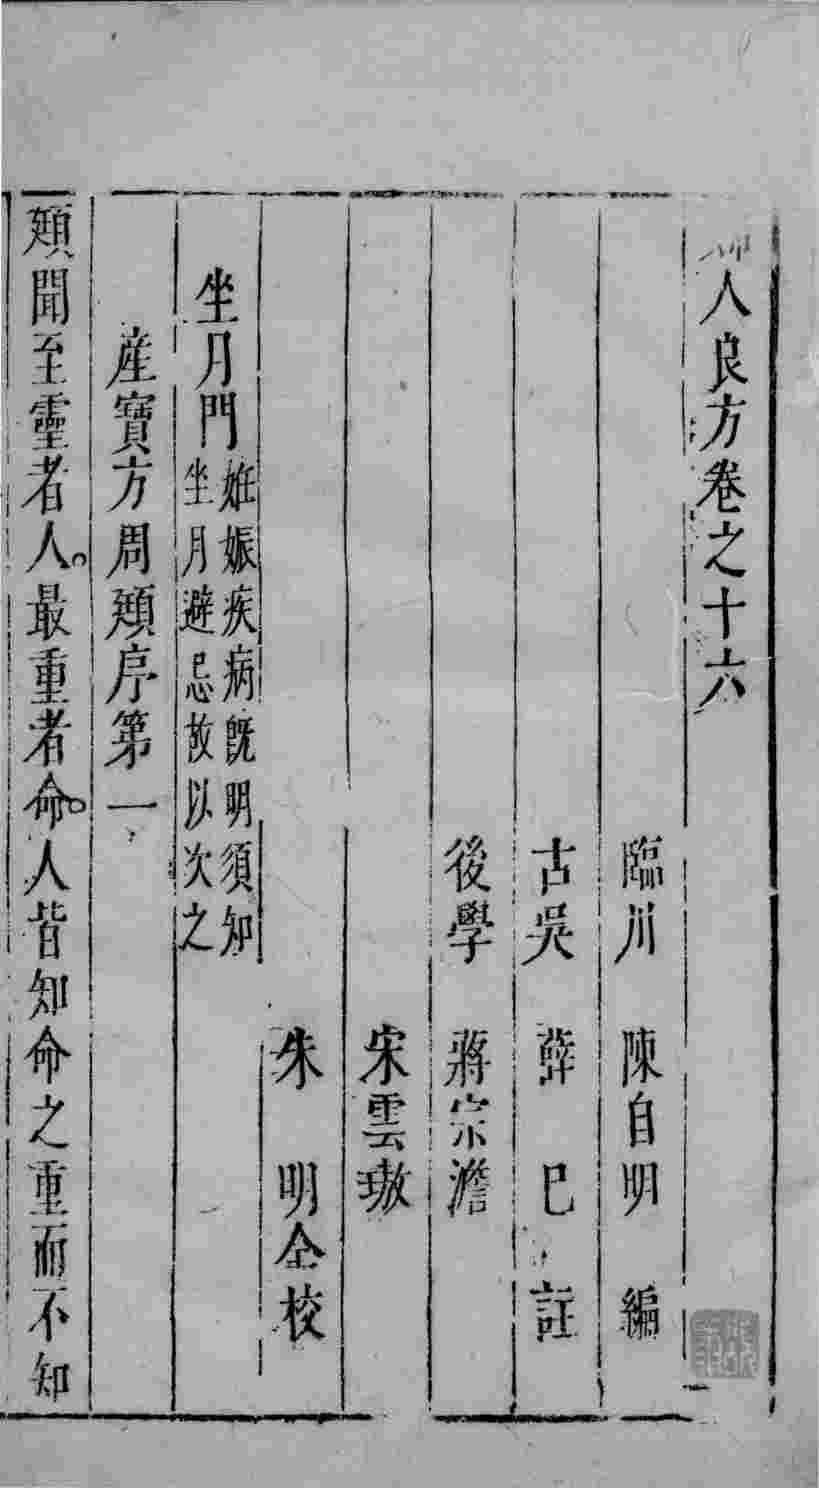 婦人良方卷之十六
臨川 陳自明 編
古吳 薛 已 註
後學 蔣宗澹
宋雲璈
朱 明仝校
坐月門 姙娠疾病旣明須知
坐月避忌故以次之
産寶方周頲序第一
頲聞至靈者人最重者命人皆知命之重而不知